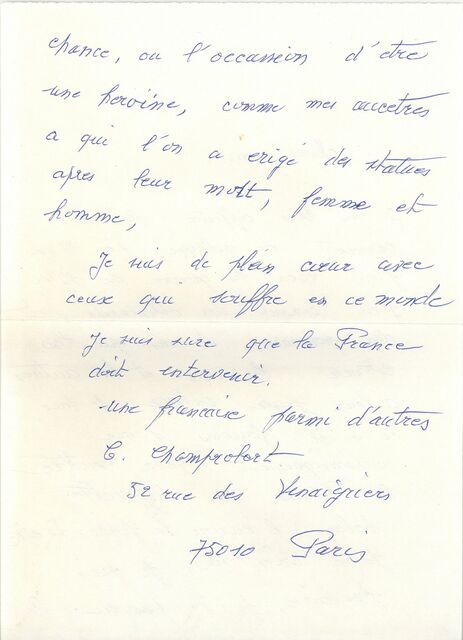 chance, ou l'occasion d'etre
une heroïne, comme mes ancetres
a qui l'on a erigé des statues
apres leur mort, femme et
homme,
Je suis de plein cœur avec
ceux qui souffre en ce monde
Je suis sure que la France
doit intervenir.
une francaise parmi d'autres
C. Champrobert
52 rue des Vinaigriers
75010 Paris